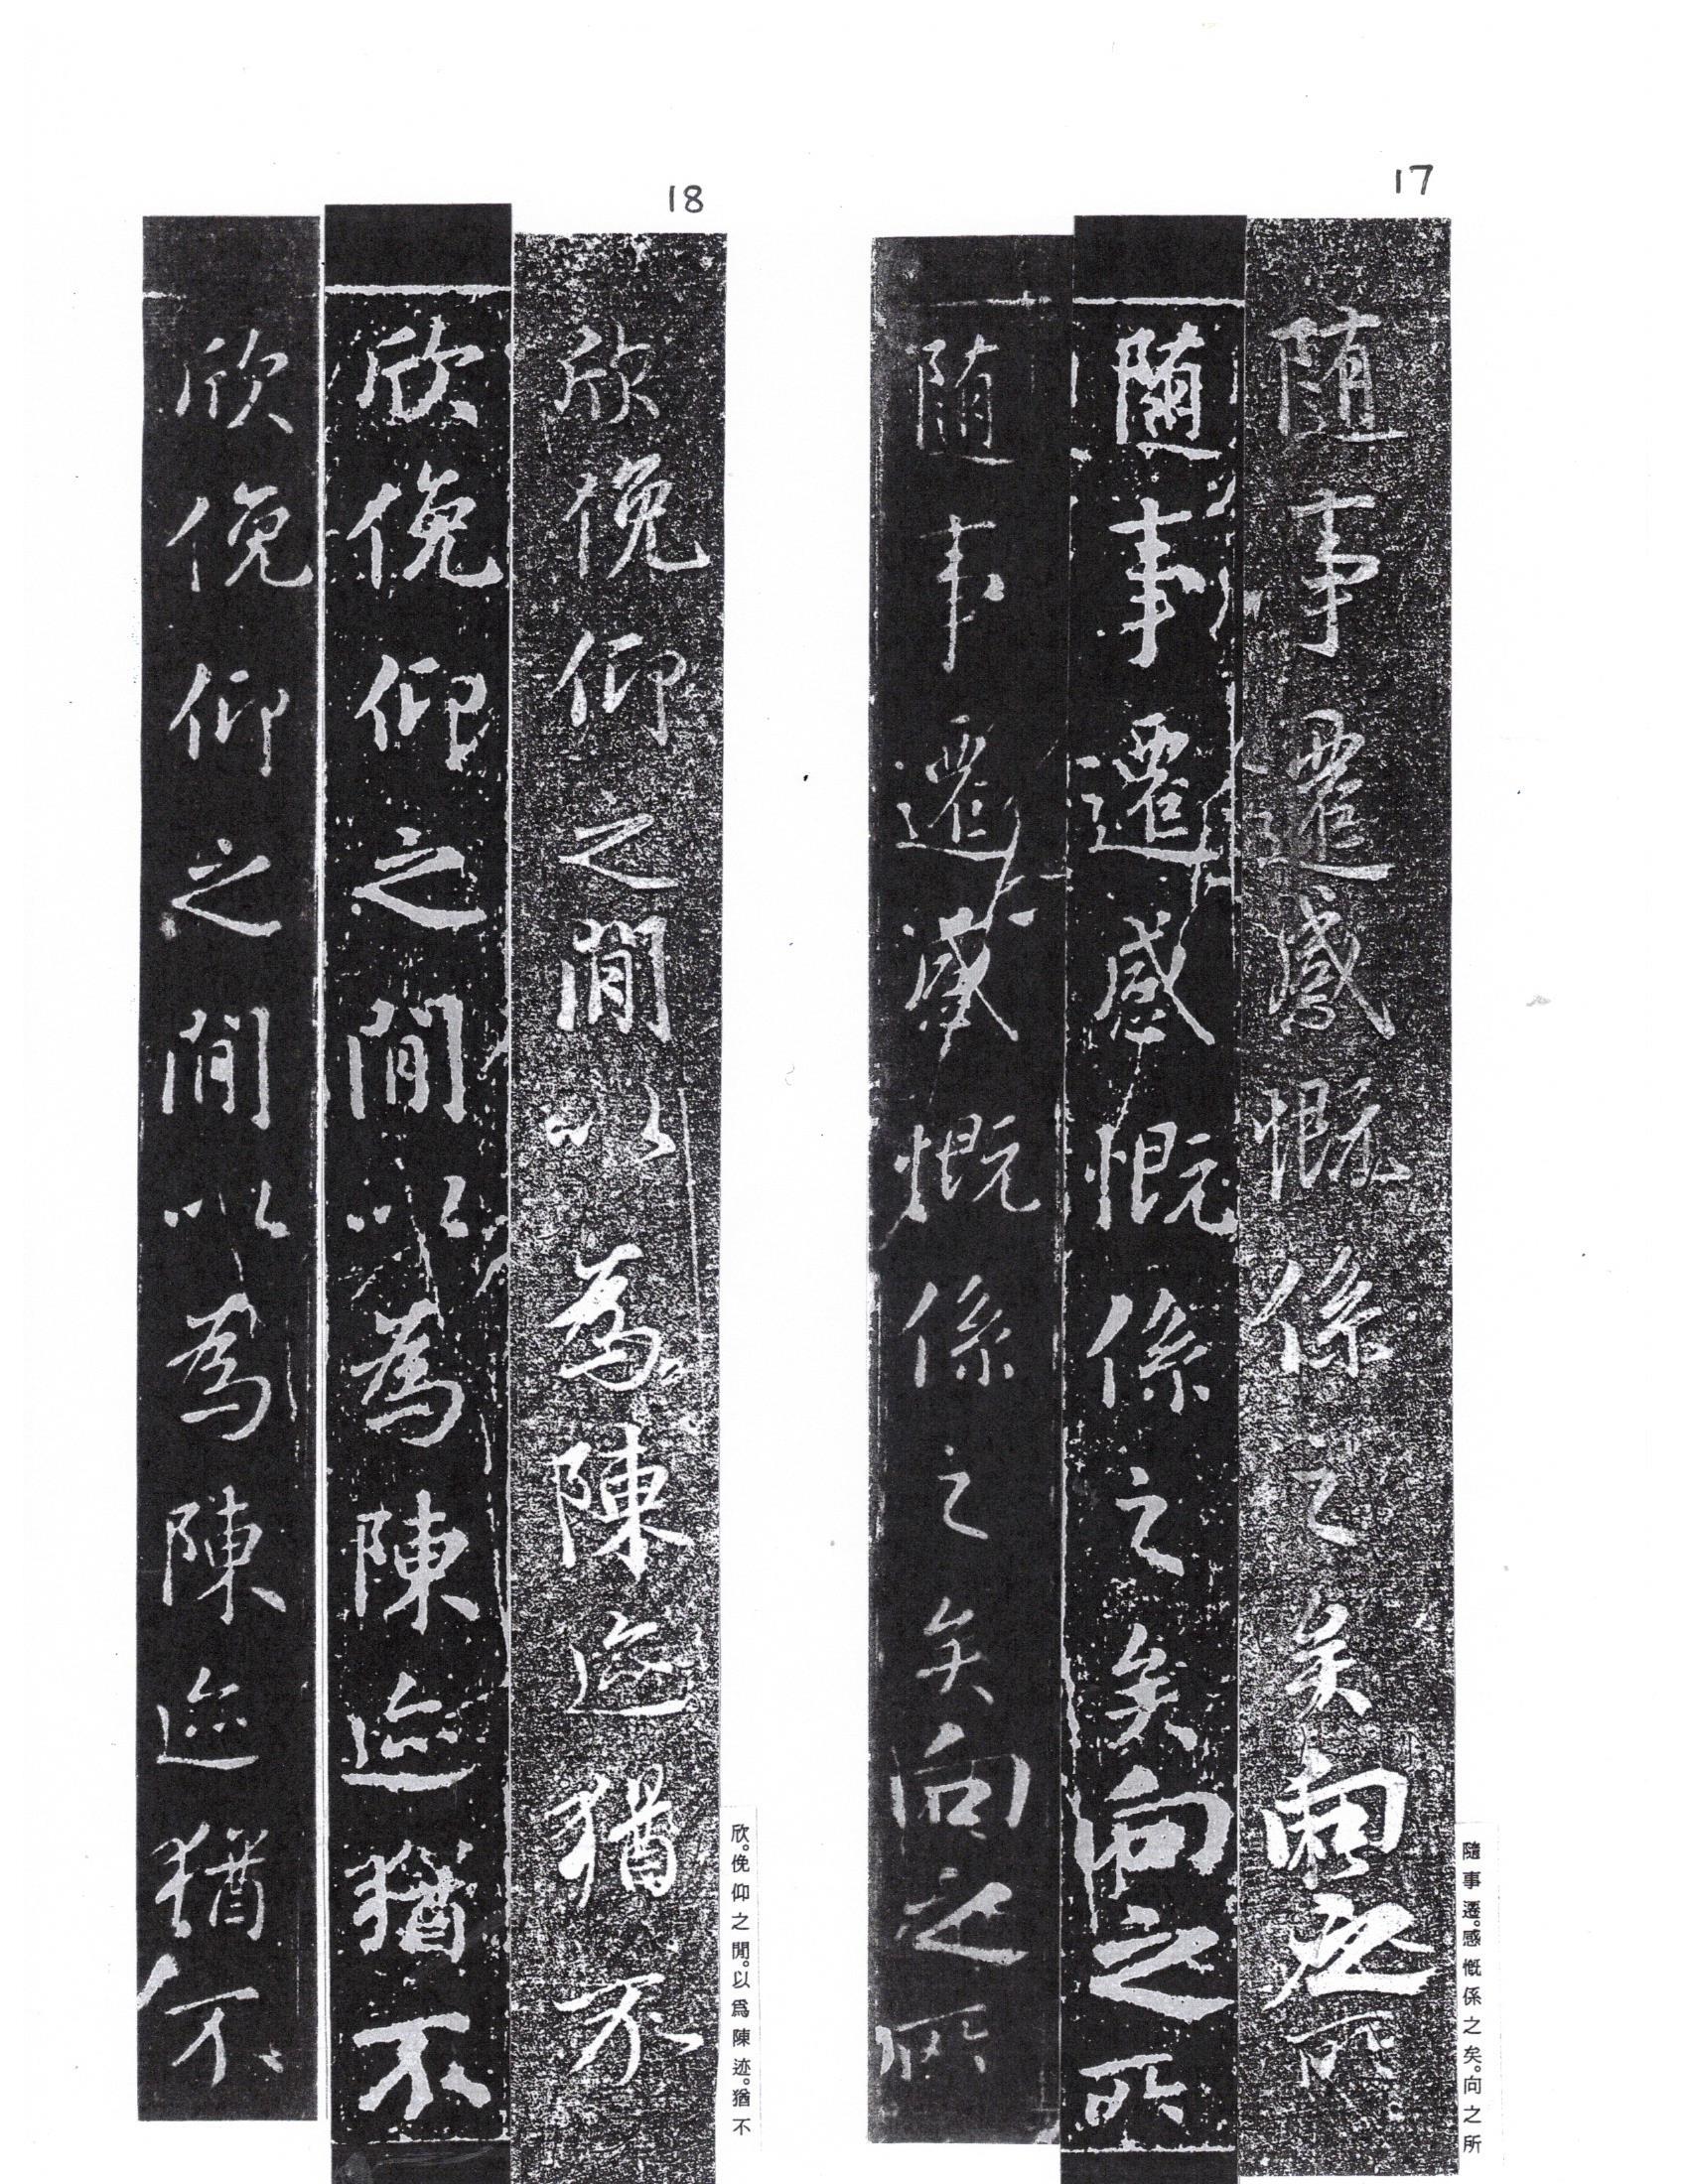 17
隨事遷感慨係之矣向之所
隨事遷感慨係之矣向之所
隨事遷感慨係之矣向之所
隨事遷。感慨係之矣。向之所
18
欣俛仰之閒以為陳迹猶不
欣俛仰之閒以為陳迹猶不
欣俛仰之閒以為陳迹猶不
欣。俛仰之閒。以爲陳迹。猶不